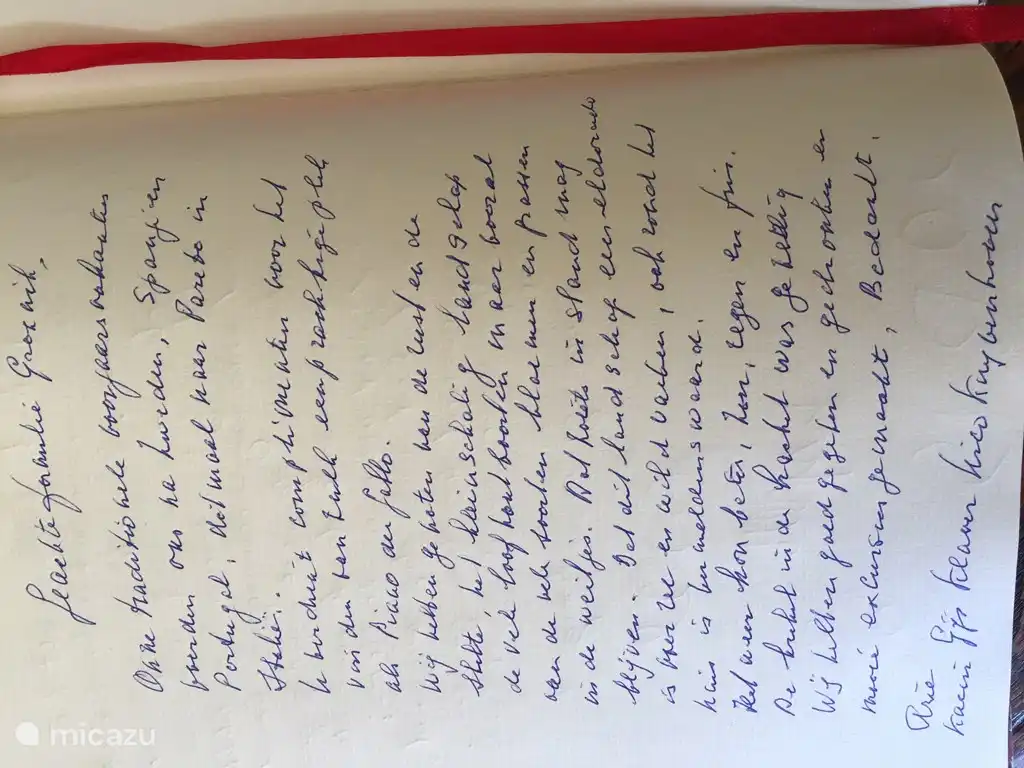 Geachte familie
Onze traditionele voorjaarsvakanties
voerden ons na Zweden, Spanje en
Portugal, ditmaal naar in
Italië.
U verdient complimenten voor het
vinden van zulk een prachtige plek
als Piano del Gallo.
Wij hebben genoten van de rust en de
stilte, het kleinschalig landschap
de vele maar vooral
van de vele soorten bloemen en grassen
in de weitjes. in stand mag
blijven. Dat dit landschap een eldorado
is voor ree en wild varken, ook rond het
huis is vermeldenswaard.
Het weer kon beter, kou, regen en fris.
De kachel in de was gezellig
Wij hebben goed gegeten en gedronken en
mooie gemaakt, Bedankt.
Arie Gijs Klaver Nico
Karin
micazu